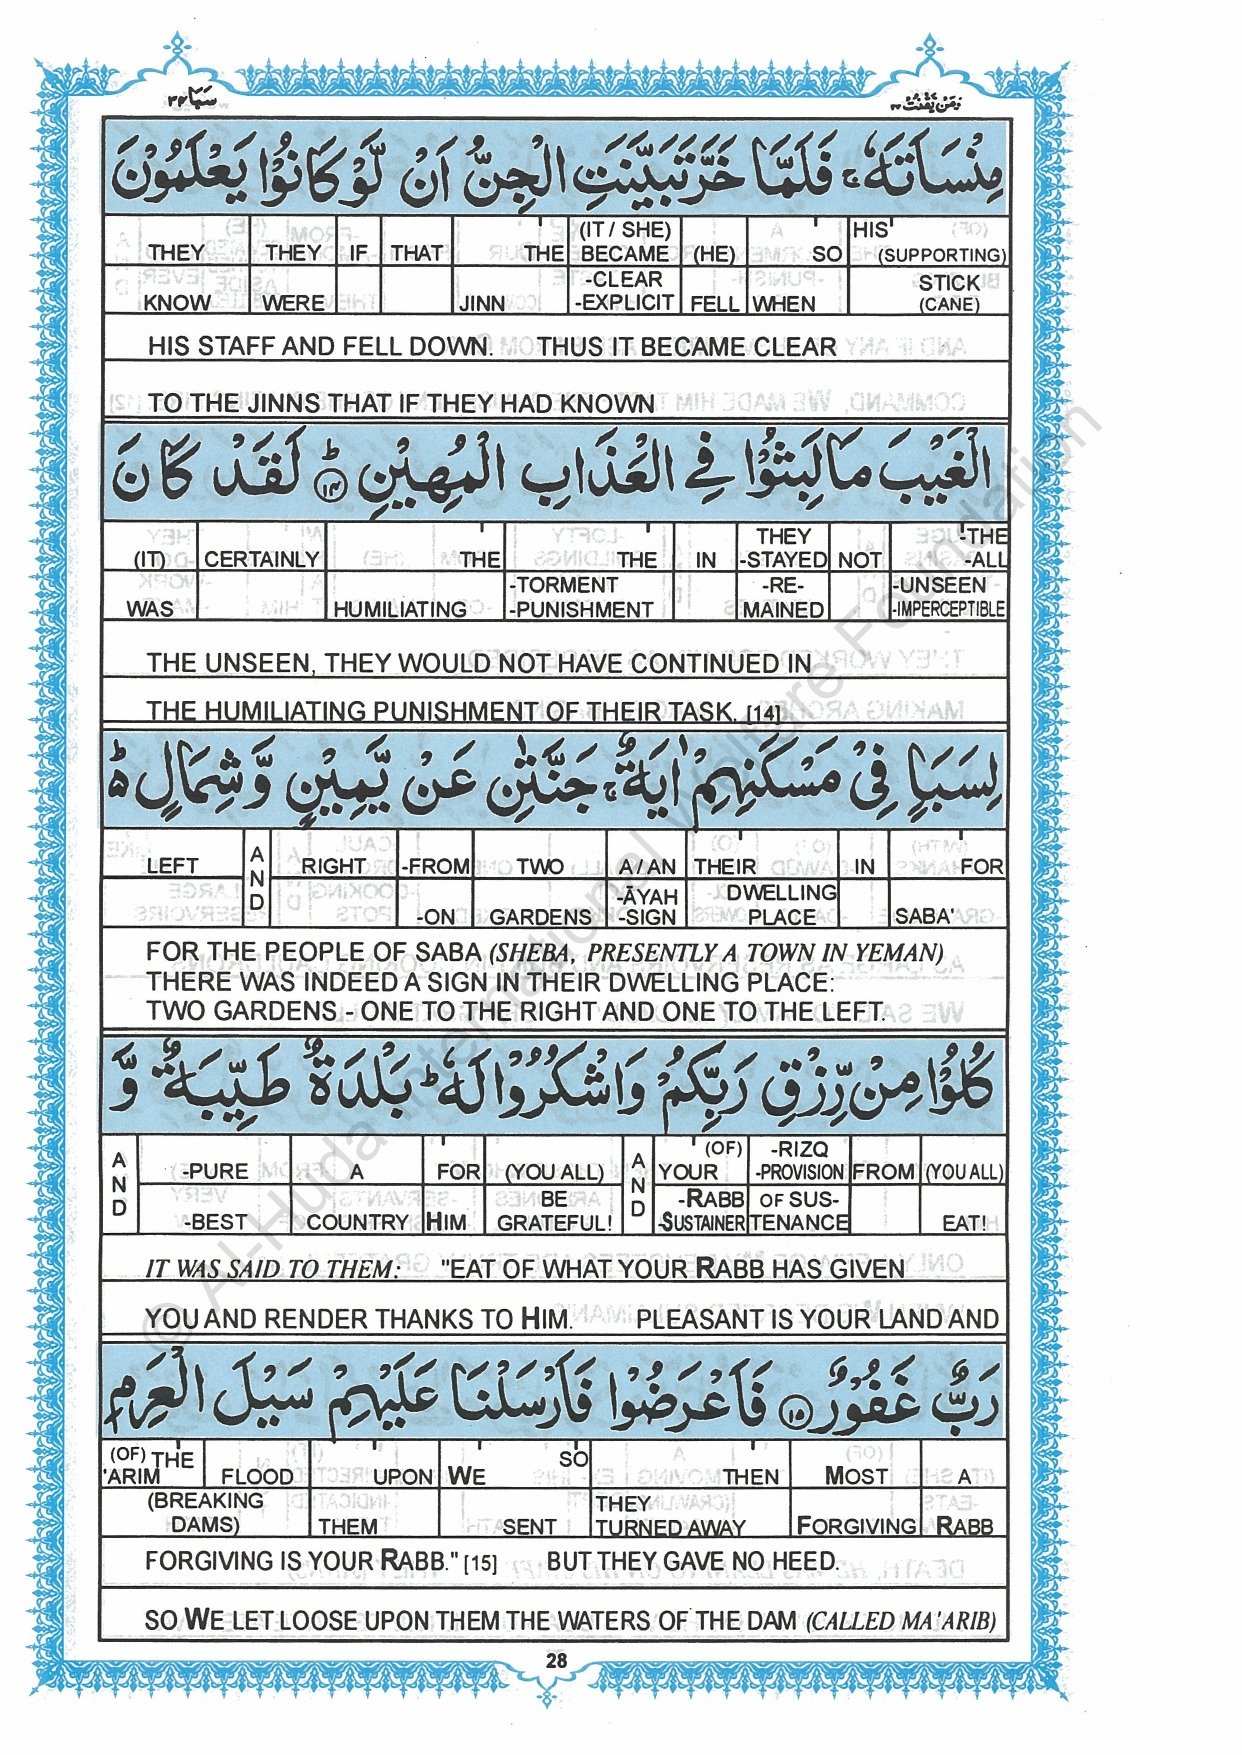 سَبَا ٣٤ وَمَنْ يَّقْنُتْ ٢٢
مِنْسَاَتَهٗ ۚ فَلَمَّا خَرَّ تَبَيَّنَتِ الْجِنُّ اَنْ لَّوْ كَانُوْا يَعْلَمُوْنَ
THEY THEY IF THAT THE (IT / SHE) BECAME (HE) SO HIS' (SUPPORTING)
KNOW WERE JINN -CLEAR -EXPLICIT FELL WHEN STICK (CANE)
HIS STAFF AND FELL DOWN. THUS IT BECAME CLEAR
TO THE JINNS THAT IF THEY HAD KNOWN
الْغَيْبَ مَا لَبِثُوْا فِي الْعَذَابِ الْمُهِيْنِ ؕ ١٤ لَقَدْ كَانَ
(IT) CERTAINLY THE THE IN THEY -STAYED NOT -THE -ALL
WAS HUMILIATING -TORMENT -PUNISHMENT -RE- MAINED -UNSEEN -IMPERCEPTIBLE
THE UNSEEN, THEY WOULD NOT HAVE CONTINUED IN
THE HUMILIATING PUNISHMENT OF THEIR TASK. [14]
لِسَبَاٍ فِيْ مَسْكَنِهِمْ اٰيَةٌ ۚ جَنَّتٰنِ عَنْ يَّمِيْنٍ وَّشِمَالٍ ؕ
LEFT AND RIGHT -FROM TWO A/AN THEIR IN FOR
-ON GARDENS -ĀYAH -SIGN DWELLING PLACE SABA'
FOR THE PEOPLE OF SABA (SHEBA, PRESENTLY A TOWN IN YEMAN)
THERE WAS INDEED A SIGN IN THEIR DWELLING PLACE:
TWO GARDENS - ONE TO THE RIGHT AND ONE TO THE LEFT.
كُلُوْا مِنْ رِّزْقِ رَبِّكُمْ وَاشْكُرُوْا لَهٗ ؕ بَلْدَةٌ طَيِّبَةٌ وَّ
AND -PURE A FOR (YOU ALL) AND (OF) YOUR -RIZQ -PROVISION FROM (YOU ALL)
-BEST COUNTRY HIM BE GRATEFUL! -RABB -SUSTAINER OF SUS- TENANCE EAT!
IT WAS SAID TO THEM: "EAT OF WHAT YOUR RABB HAS GIVEN
YOU AND RENDER THANKS TO HIM. PLEASANT IS YOUR LAND AND
رَبٌّ غَفُوْرٌ ١٥ فَاَعْرَضُوْا فَاَرْسَلْنَا عَلَيْهِمْ سَيْلَ الْعَرِمِ
(OF) THE 'ARIM FLOOD UPON WE SO THEN MOST A
(BREAKING DAMS) THEM SENT THEY TURNED AWAY FORGIVING RABB
FORGIVING IS YOUR RABB." [15] BUT THEY GAVE NO HEED.
SO WE LET LOOSE UPON THEM THE WATERS OF THE DAM (CALLED MA'ARIB)
28
© Al-Huda International Welfare Foundation